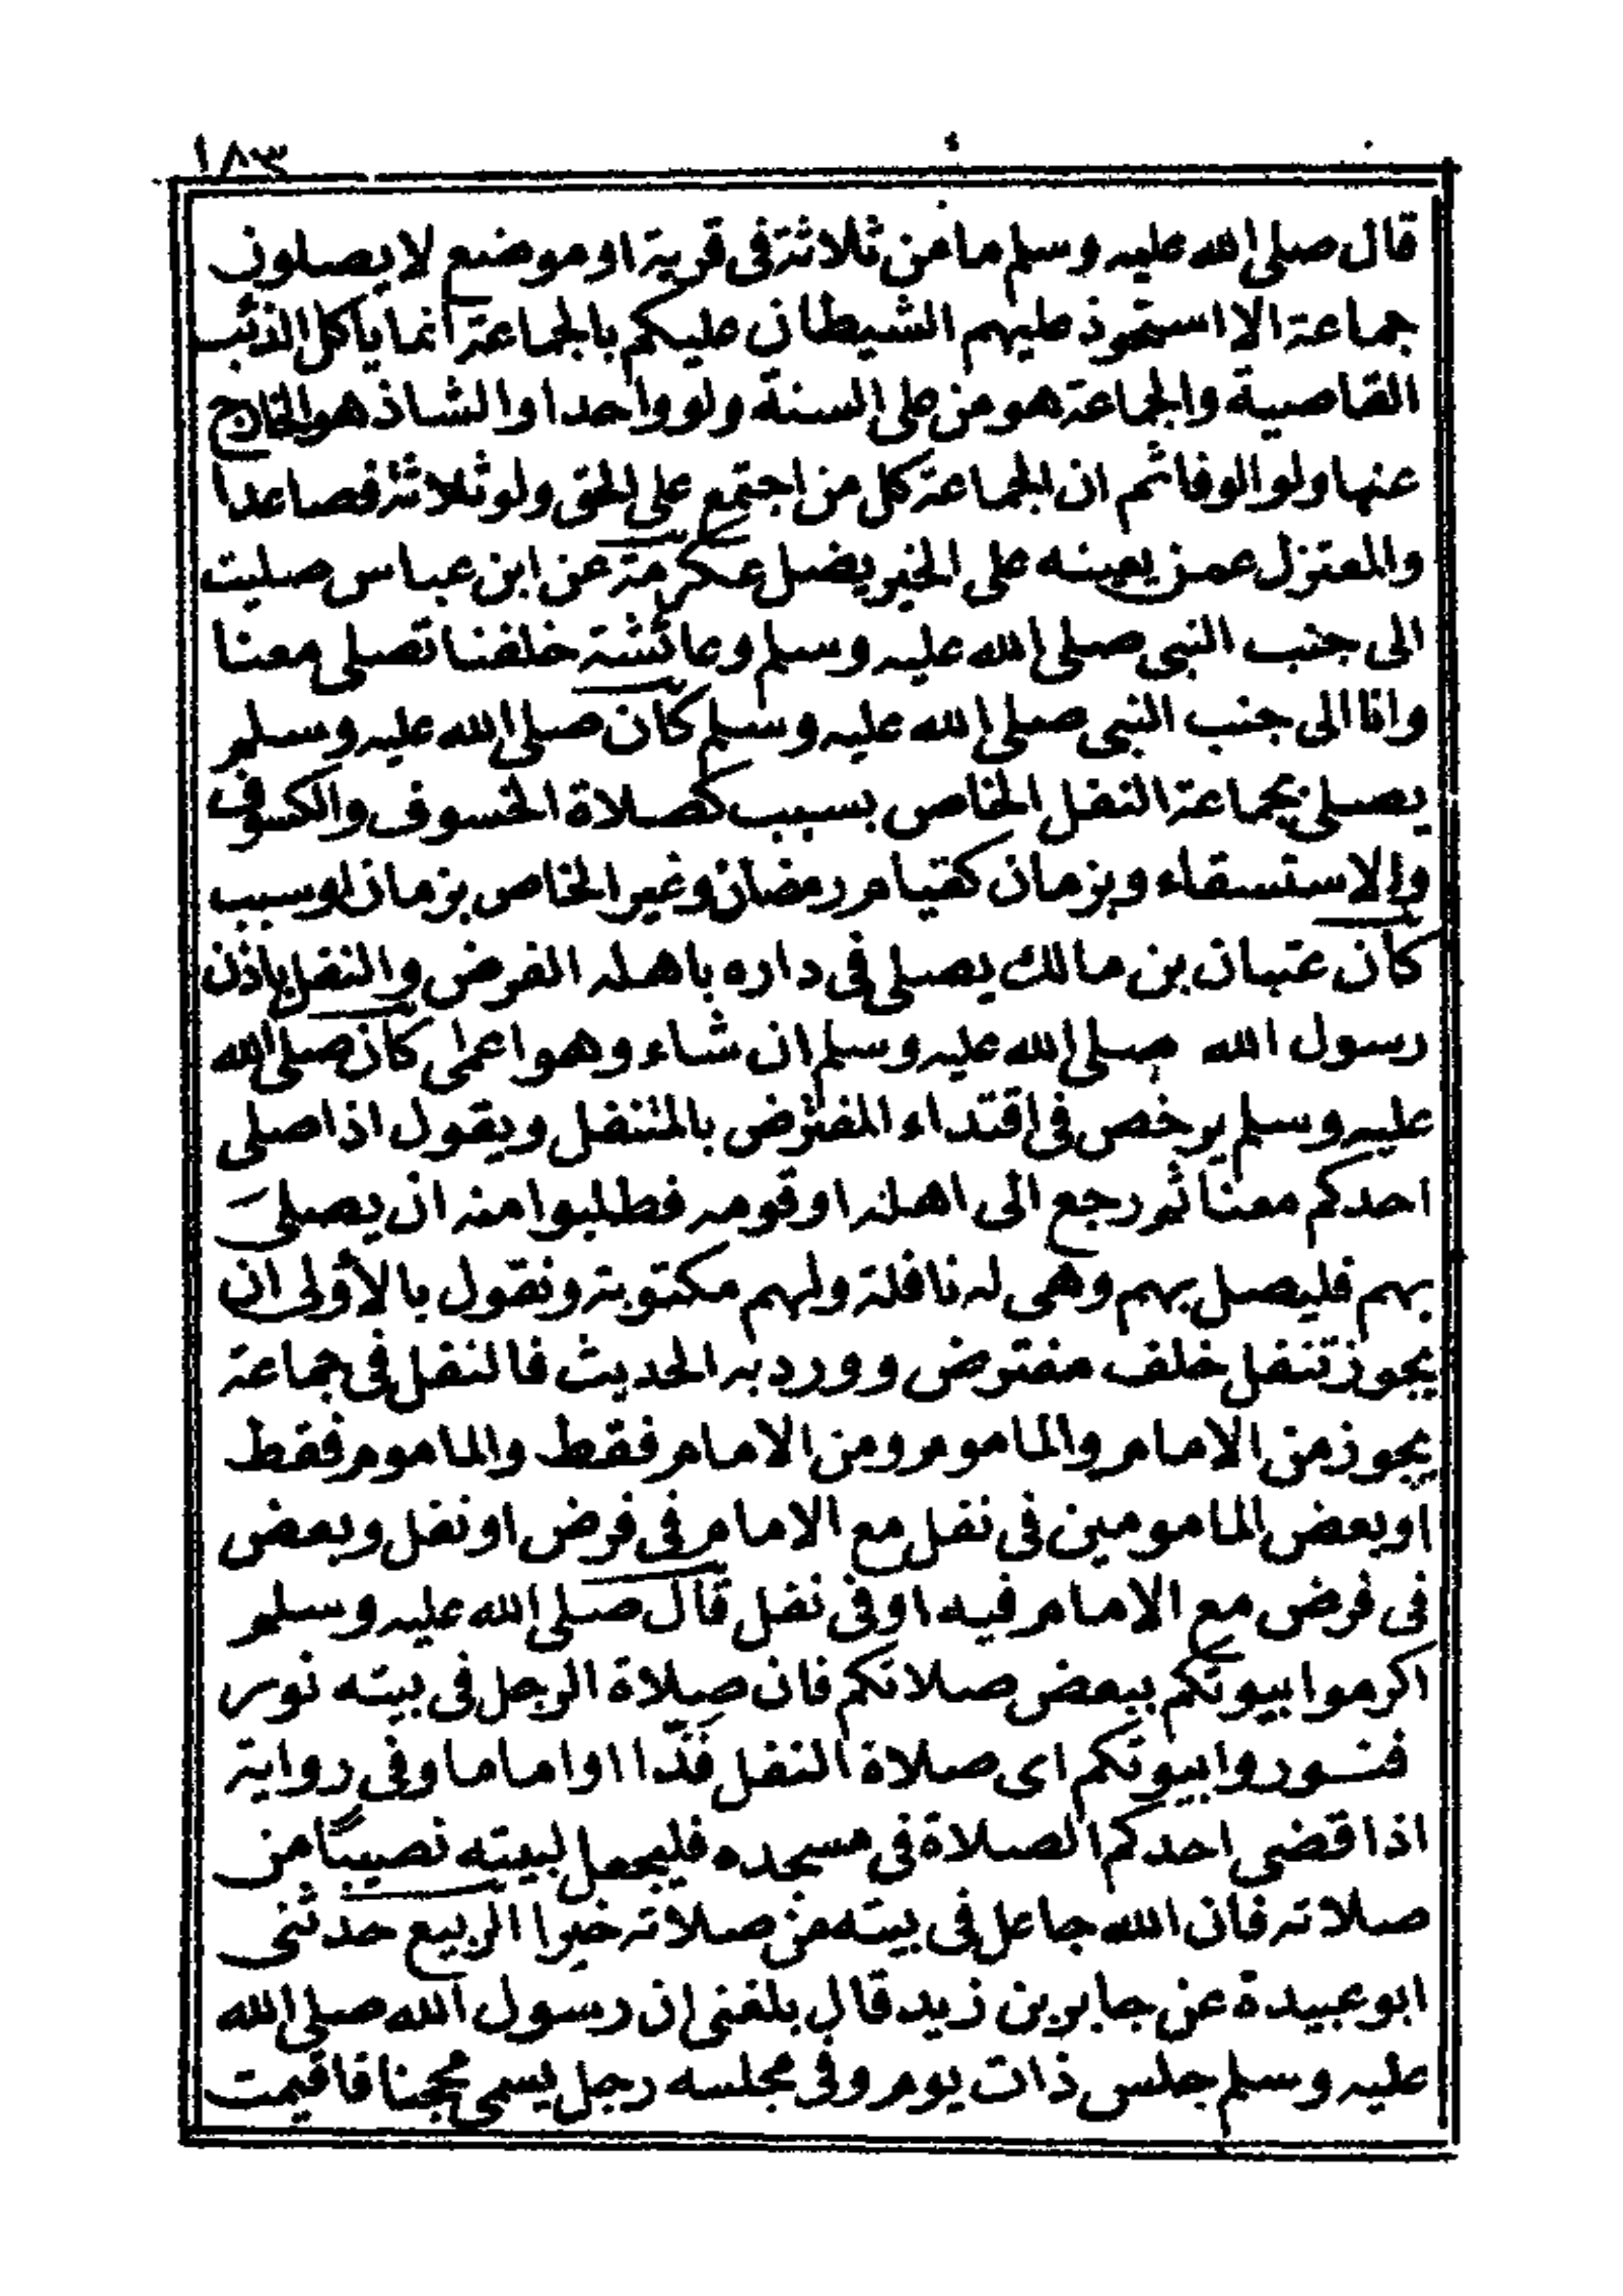 ١٨٣
قال صلى الله عليه وسلم ما من ثلاثة فى قرية او موضع لا يصلون
جماعة الا استحوذ عليهم الشيطان عليكم بالجماعة انما ياكل الذئب
القاصية والجماعة هو من على السنة ولو واحدا والشاذ هو الخارج
عنها ولو الوفا ثم ان الجماعة كل من اجتمع على الحق ولو ثلاثة فصاعدا
والمعتزل عمن يعينه على الخير يضل عكرمة عن ابن عباس صليت
الى جنب النبى صلى الله عليه وسلم وعائشة خلفنا تصلى معنا
وانا الى جنب النبى صلى الله عليه وسلم كان صلى الله عليه وسلم
يصلى بجماعة النفل الخاص بسبب كصلاة الخسوف والكسوف
والاستسقاء وبزمان كقيام رمضان وغير الخاص بزمان او سبب
كان عتبان بن مالك يصلى فى داره باهله الفرض والنفل باذن
رسول الله صلى الله عليه وسلم ان شاء وهو اعمى كان صلى الله
عليه وسلم يرخص فى اقتداء المفترض بالمتنفل ويقول اذا صلى
احدكم معنا ثم رجع الى اهله او قومه فطلبوا منه ان يصلى
بهم فليصل بهم وهى له نافلة ولهم مكتوبة ونقول بالأولى ان
يجوز تنفل خلف مفترض وورد به الحديث فالنفل فى جماعة
يجوز من الامام والماموم ومن الامام فقط والماموم فقط
او بعض المامومين فى نفل مع الامام فى فرض او نفل وبعض
فى فرض مع الامام فيه او فى نفل قال صلى الله عليه وسلم
اكرموا بيوتكم ببعض صلاتكم فان صلاة الرجل فى بيته نور
فنوروا بيوتكم اى صلاة النفل فذّا او اماما وفى رواية
اذا قضى احدكم الصلاة فى مسجده فليجعل لبيته نصيبًا من
صلاته فان الله جاعل فى بيته من صلاته خيرا الربيع حدثنى
ابو عبيدة عن جابر بن زيد قال بلغنى ان رسول الله صلى الله
عليه وسلم جلس ذات يوم وفى مجلسه رجل يسمى محجنا فاقيمت